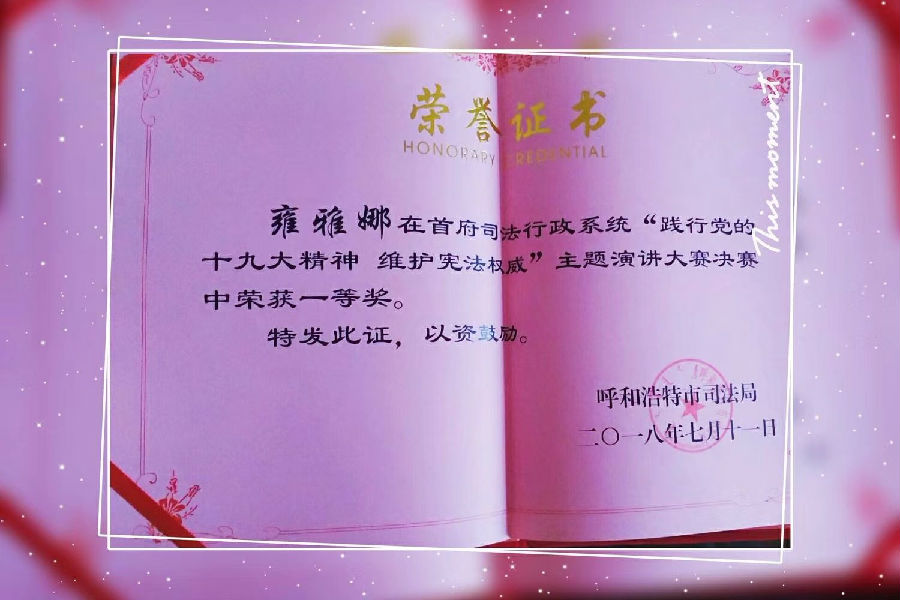 荣誉证书
HONORARY CREDENTIAL
This moment
雍雅娜在首府司法行政系统“践行党的
十九大精神 维护宪法权威”主题演讲大赛决赛
中荣获一等奖。
特发此证，以资鼓励。
呼和浩特市司法局
二〇一八年七月十一日